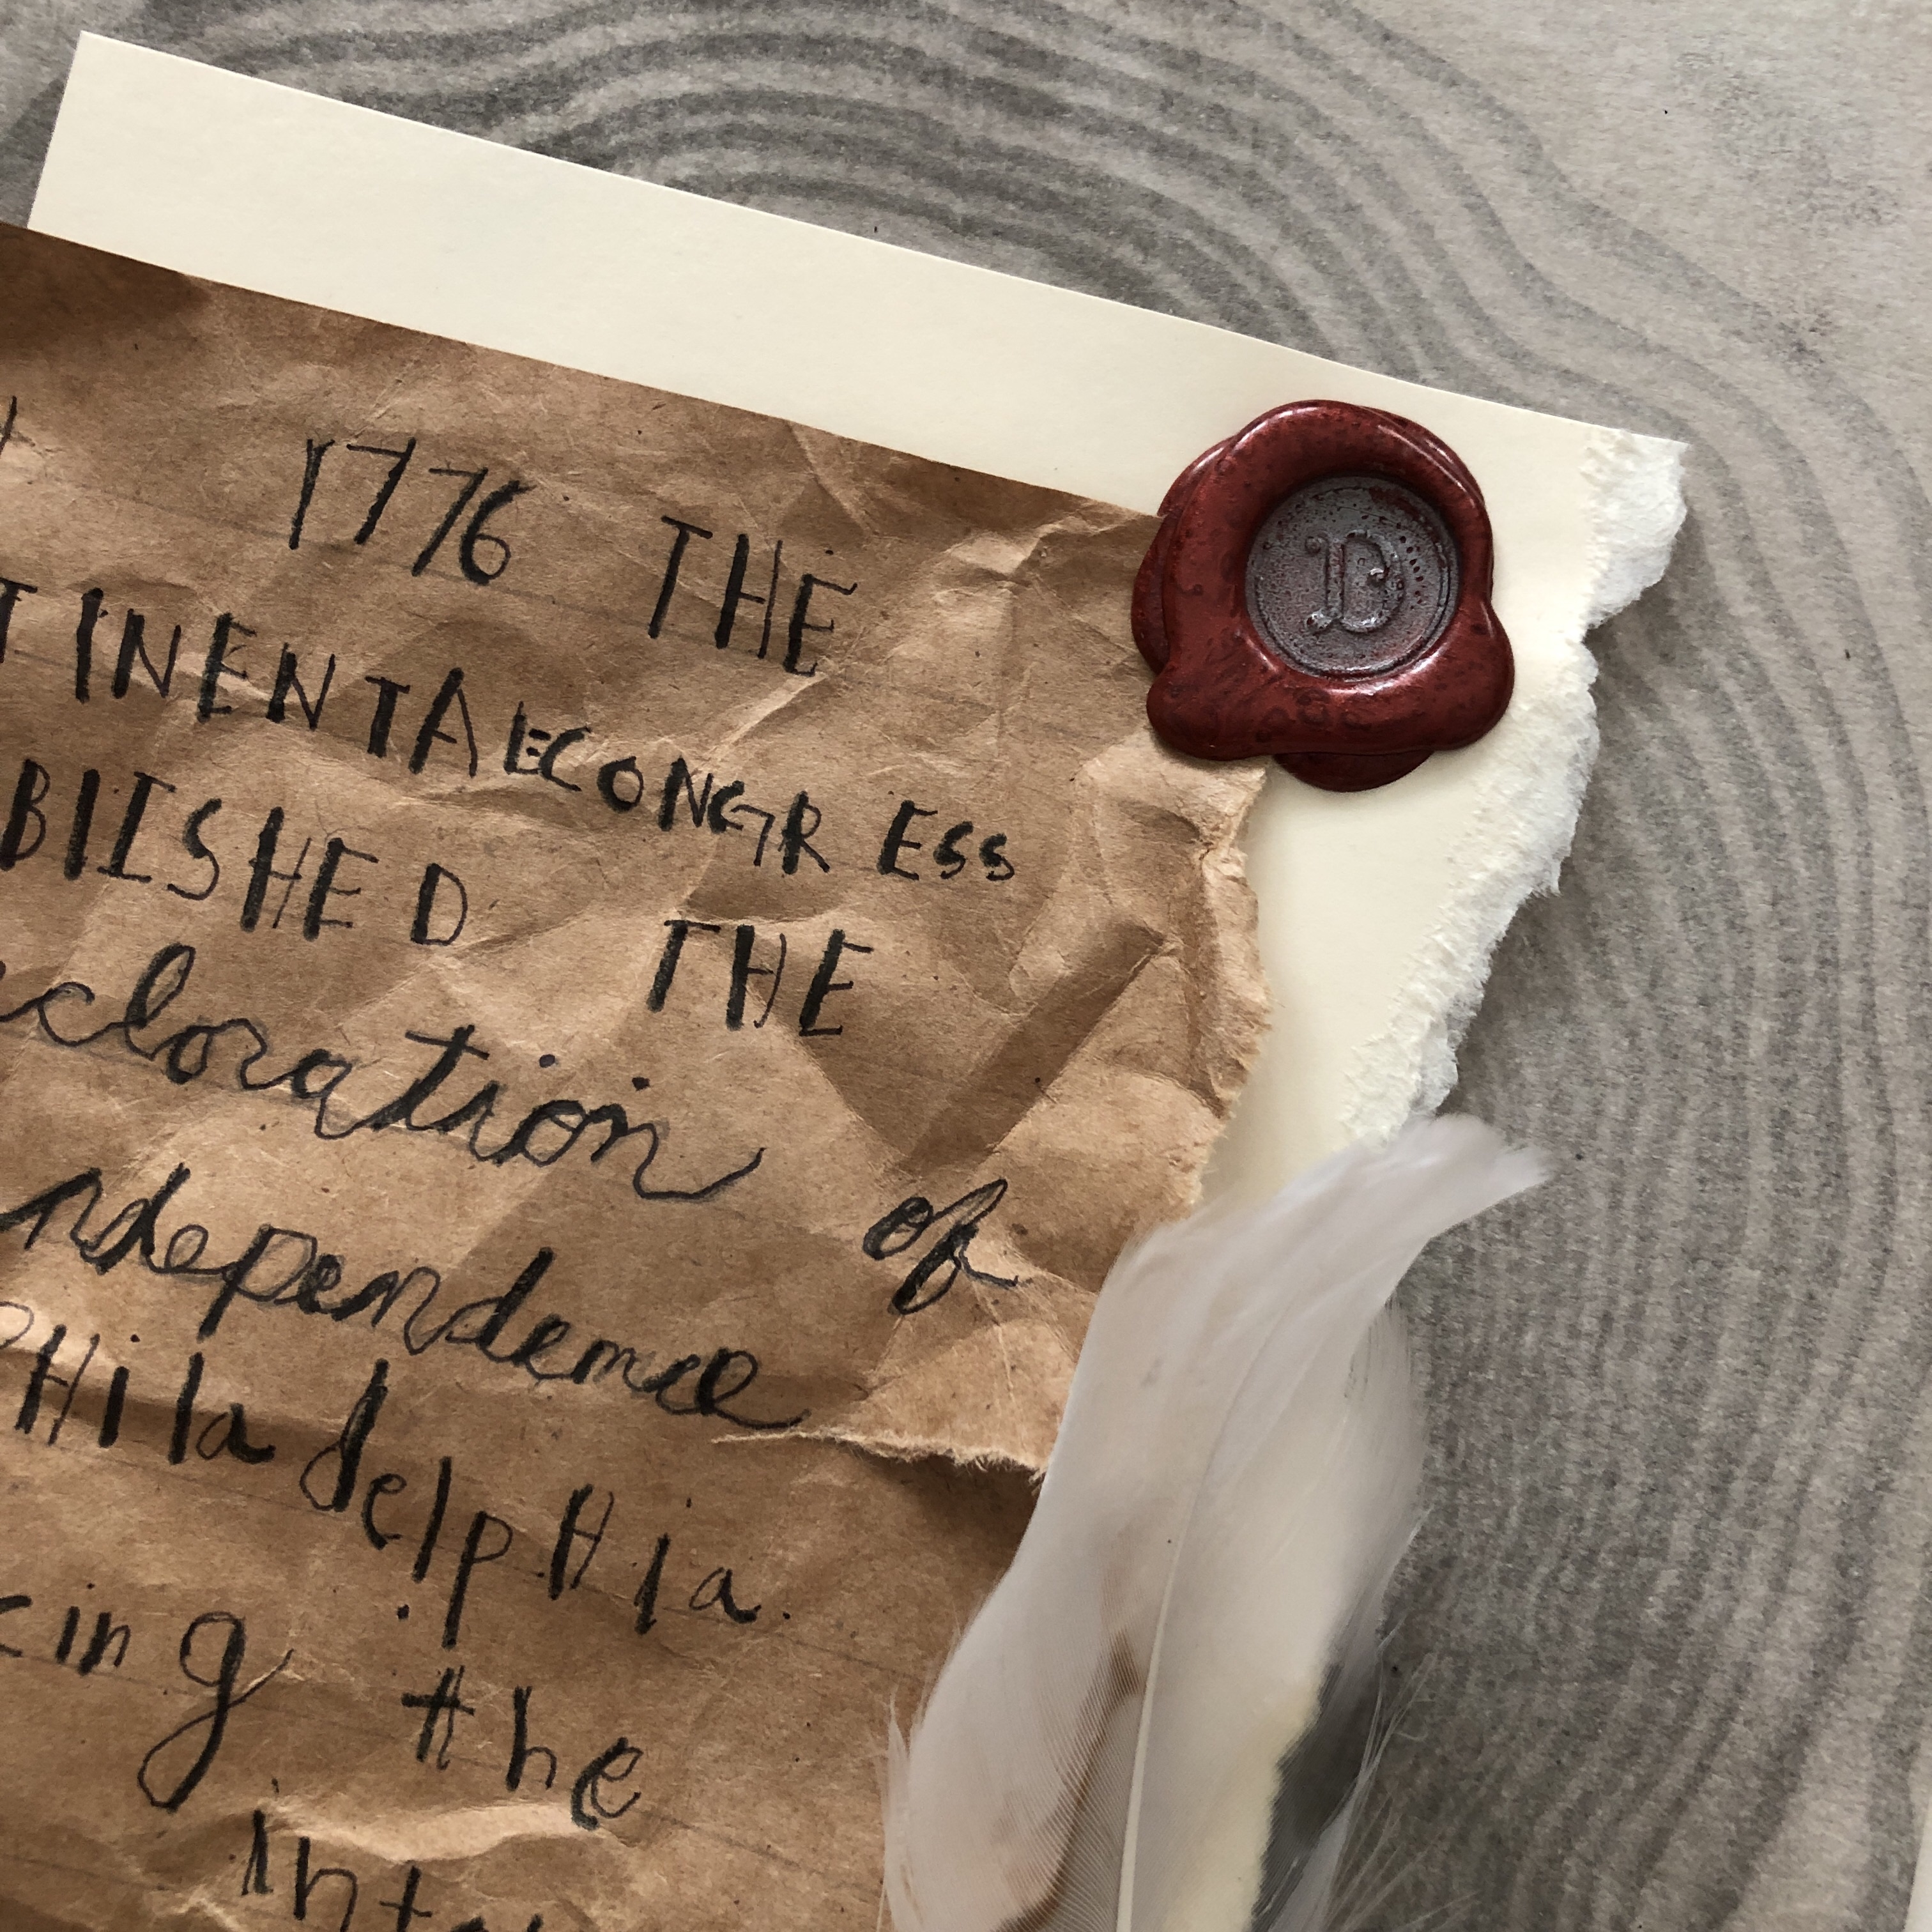 1776 THE
TINENTAECONGRESS
BIISHED THE
cloration of
ndependence
PHiladelpHia.
cing the
inte
D